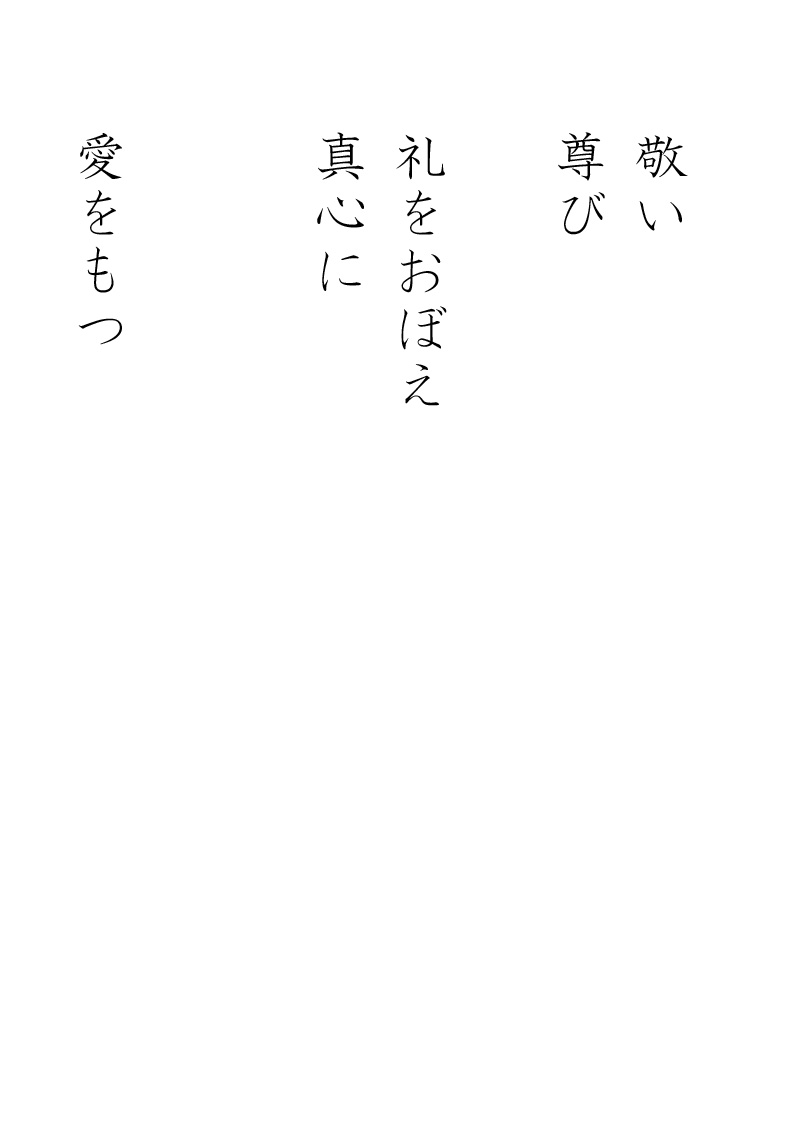 敬い
尊び
礼をおぼえ
真心に
愛をもつ